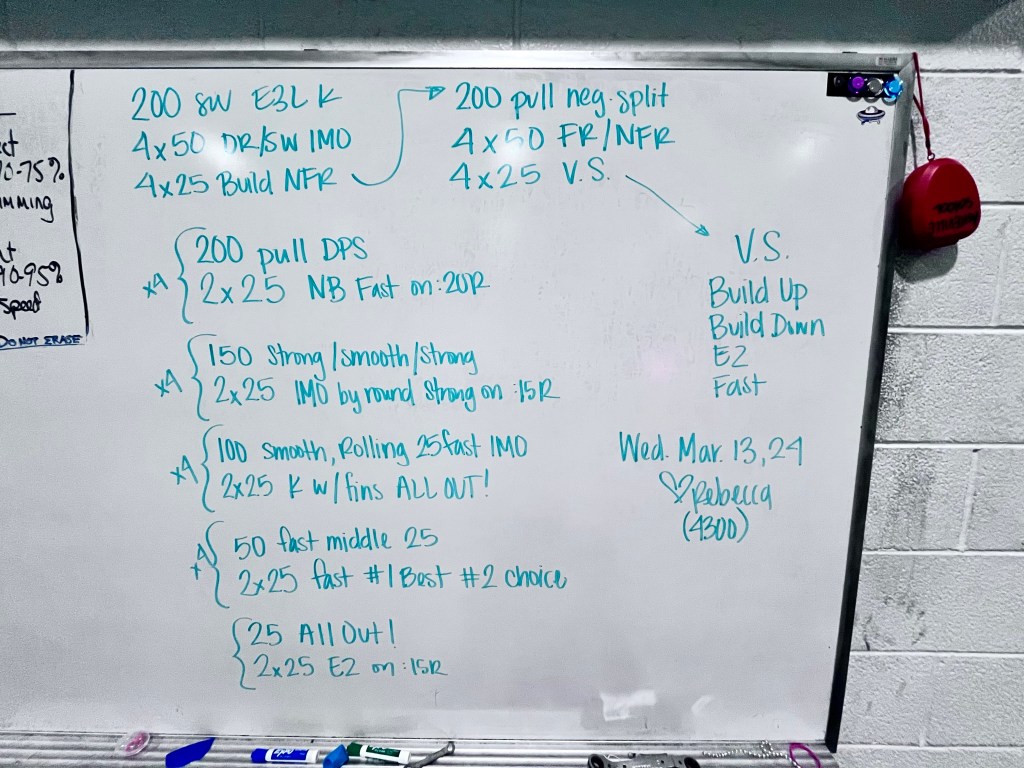 200 SW E3L K
4x50 DR/SW IMO
4x25 Build NFR
200 pull neg. split
4x50 FR/NFR
4x25 V.S.
V.S.
Build Up
Build Down
EZ
Fast
x4 { 200 pull DPS
2x25 NB Fast on :20R
x4 { 150 Strong/smooth/strong
2x25 IMO by round Strong on :15R
x4 { 100 smooth, Rolling 25 fast IMO
2x25 K w/fins ALL OUT!
x4 { 50 fast middle 25
2x25 fast #1 Best #2 choice
{ 25 All Out!
2x25 EZ on :15R
Wed. Mar. 13, 24
♡Rebecca
(4300)
0-75%
90-95%
Speed
DO NOT ERASE